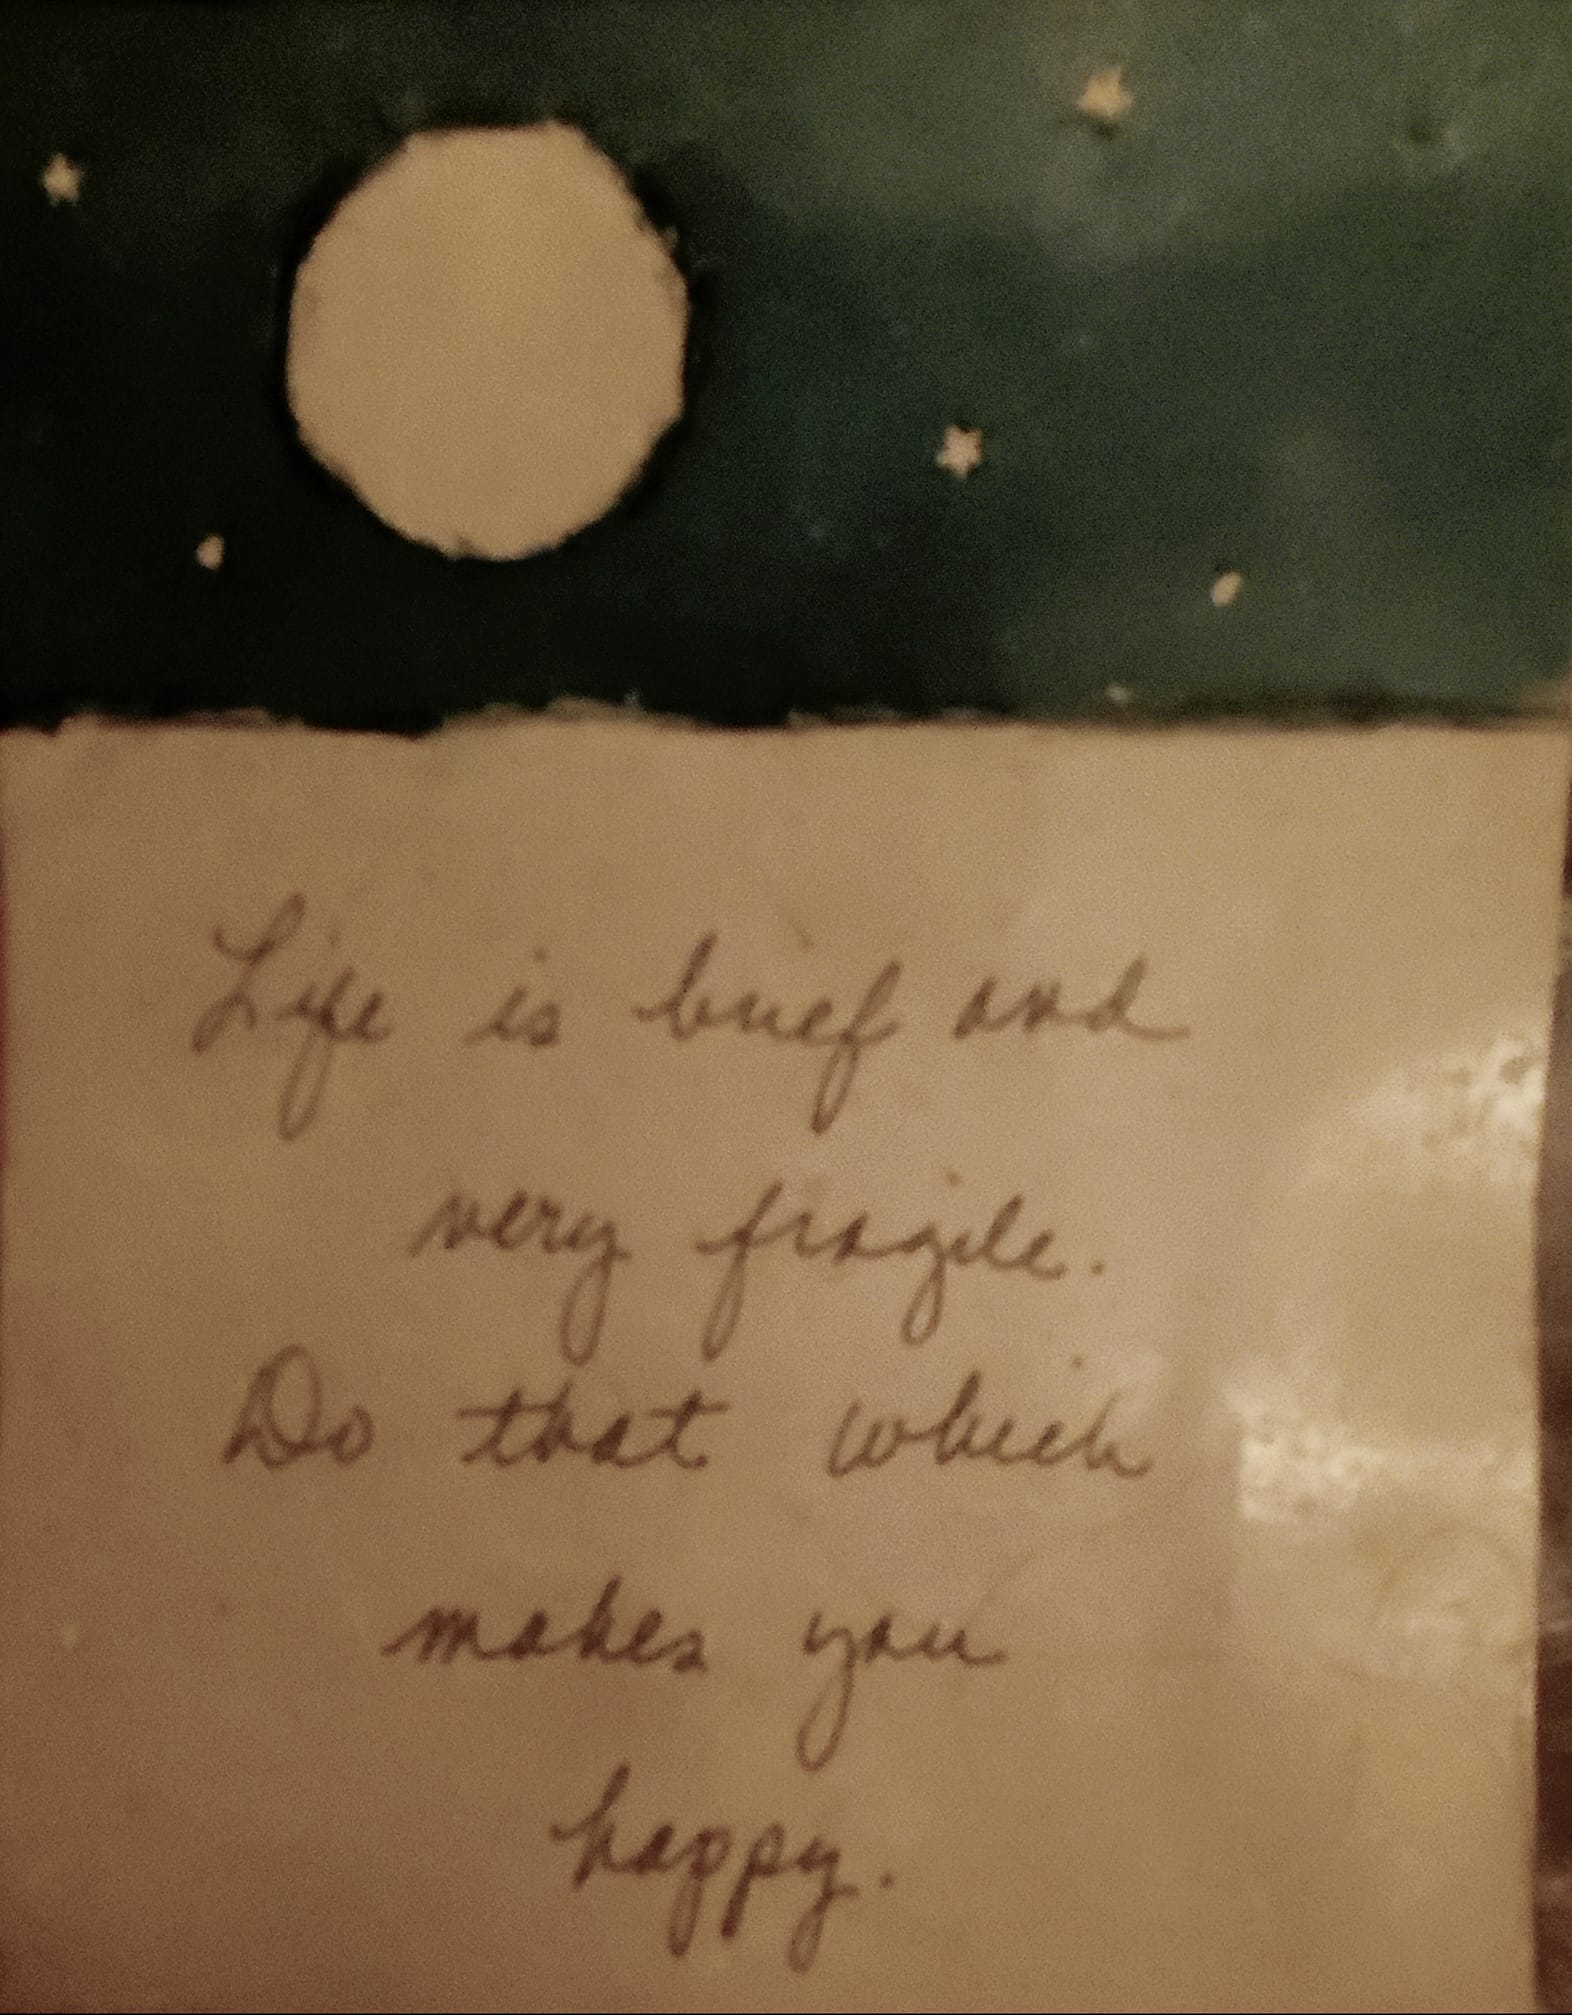 Life is brief and
very fragile.
Do that which
makes you
happy.